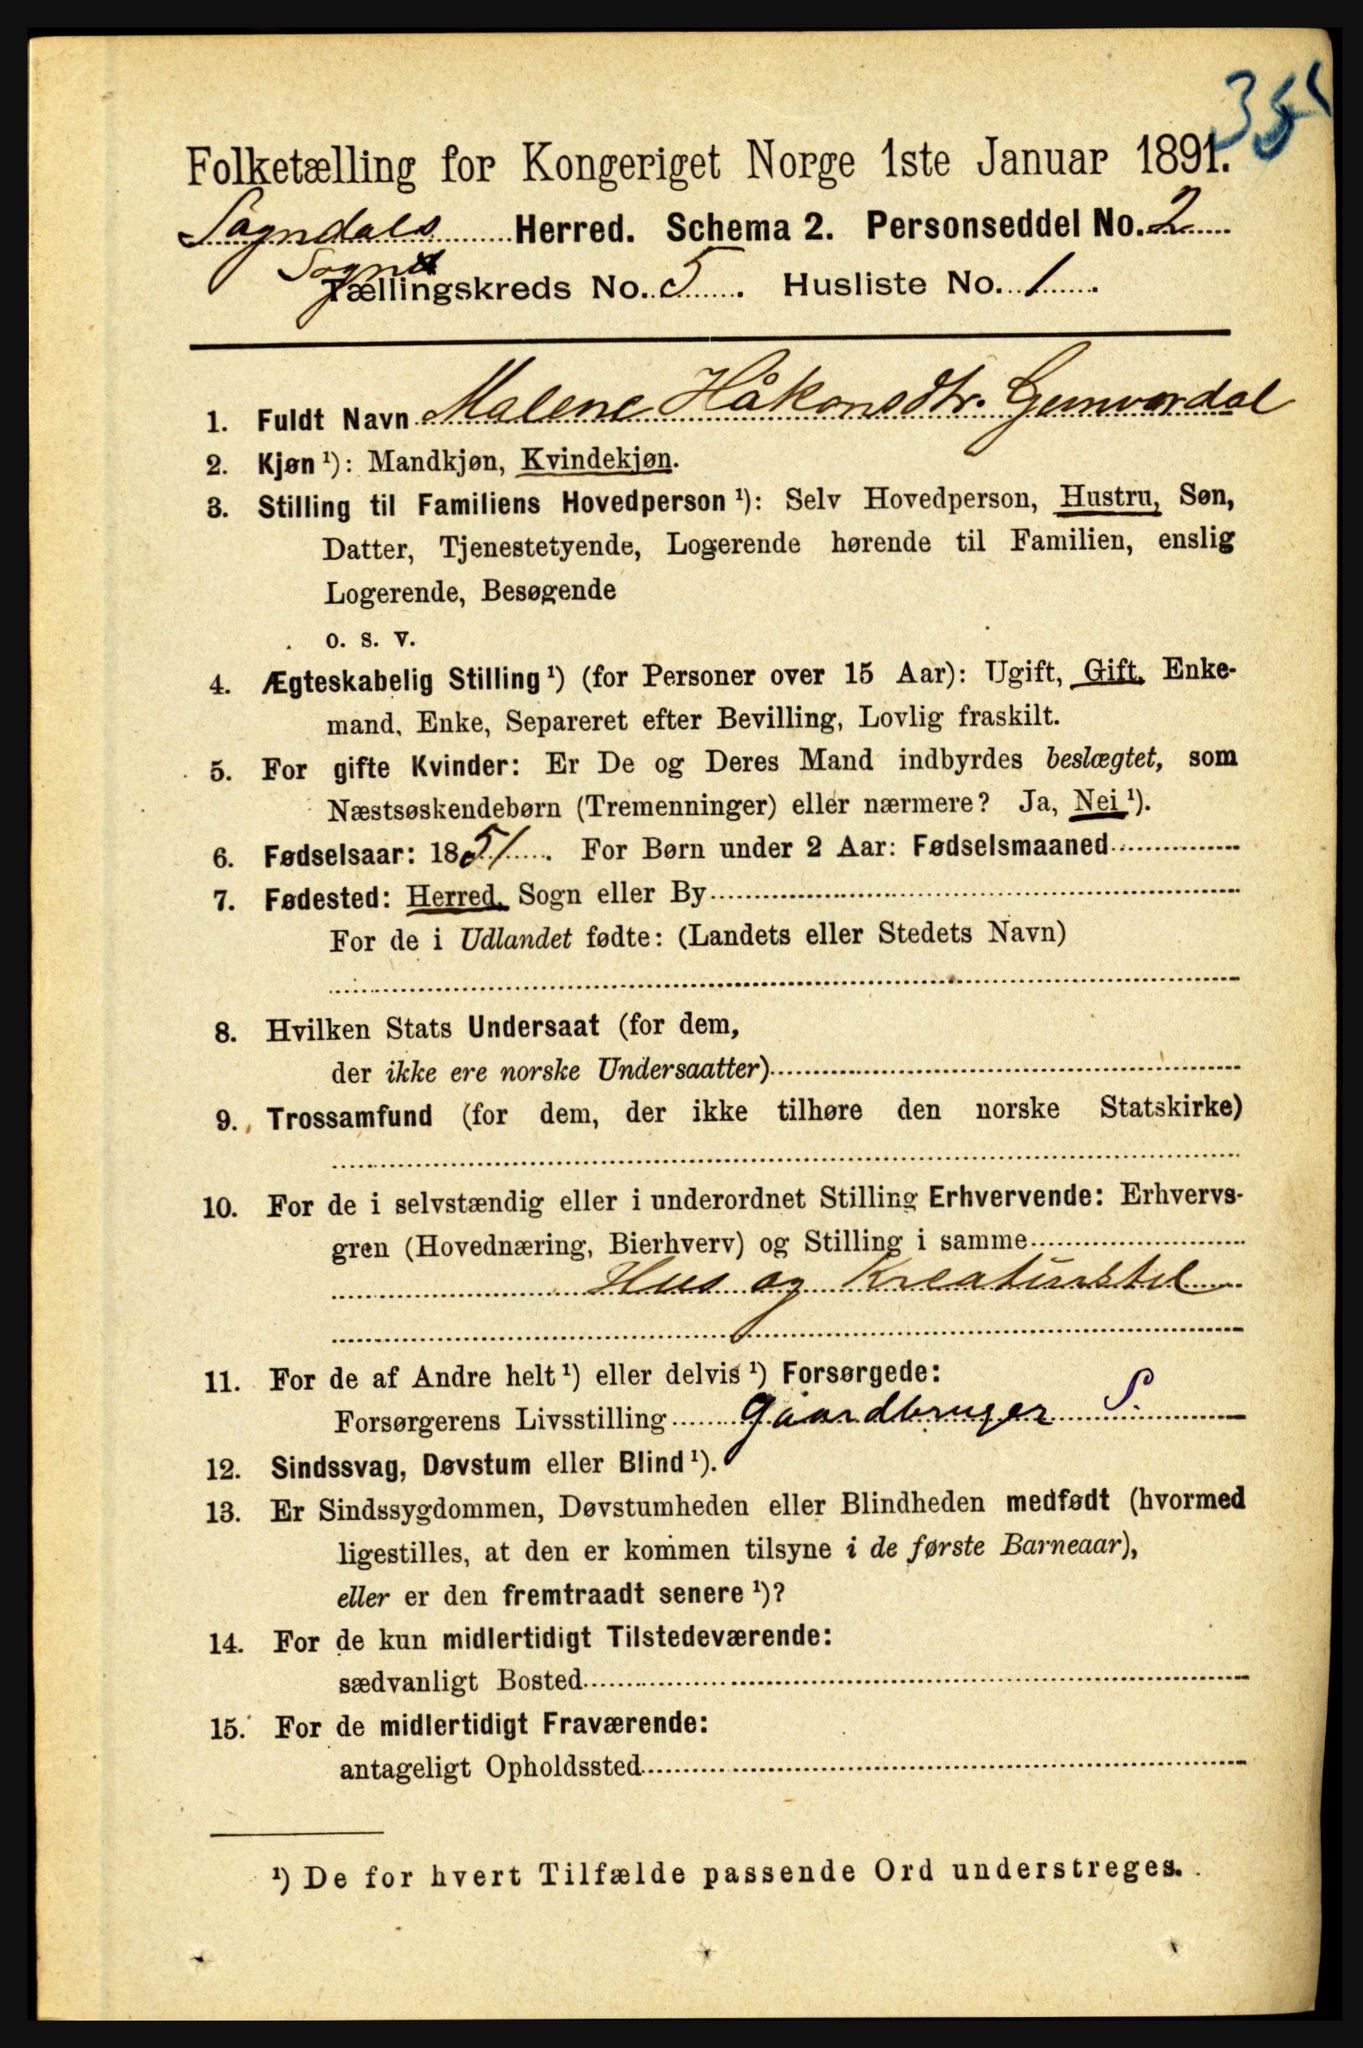 35
Folketælling for Kongeriget Norge 1ste Januar 1891.
Sogndals Herred. Schema 2. Personseddel No. 2
Sogn
Tællingskreds No. 5. Husliste No. 1.
1. Fuldt Navn Malene Håkonsdtr. Gunvordal
2. Kjøn ¹): Mandkjøn, Kvindekjøn.
3. Stilling til Familiens Hovedperson ¹): Selv Hovedperson, Hustru, Søn,
Datter, Tjenestetyende, Logerende hørende til Familien, enslig
Logerende, Besøgende
o. s. v.
4. Ægteskabelig Stilling ¹) (for Personer over 15 Aar): Ugift, Gift, Enke-
mand, Enke, Separeret efter Bevilling, Lovlig fraskilt.
5. For gifte Kvinder: Er De og Deres Mand indbyrdes beslægtet, som
Næstsøskendebørn (Tremenninger) eller nærmere? Ja, Nei ¹).
6. Fødselsaar: 1851. For Børn under 2 Aar: Fødselsmaaned
7. Fødested: Herred, Sogn eller By
For de i Udlandet fødte: (Landets eller Stedets Navn)
8. Hvilken Stats Undersaat (for dem,
der ikke ere norske Undersaatter)
9. Trossamfund (for dem, der ikke tilhøre den norske Statskirke)
10. For de i selvstændig eller i underordnet Stilling Erhvervende: Erhvervs-
gren (Hovednæring, Bierhverv) og Stilling i samme
Hus og Kreaturstel
11. For de af Andre helt ¹) eller delvis ¹) Forsørgede:
Forsørgerens Livsstilling Gaardbruger S.
12. Sindssvag, Døvstum eller Blind ¹).
13. Er Sindssygdommen, Døvstumheden eller Blindheden medfødt (hvormed
ligestilles, at den er kommen tilsyne i de første Barneaar),
eller er den fremtraadt senere ¹)?
14. For de kun midlertidigt Tilstedeværende:
sædvanligt Bosted
15. For de midlertidigt Fraværende:
antageligt Opholdssted
¹) De for hvert Tilfælde passende Ord understreges.